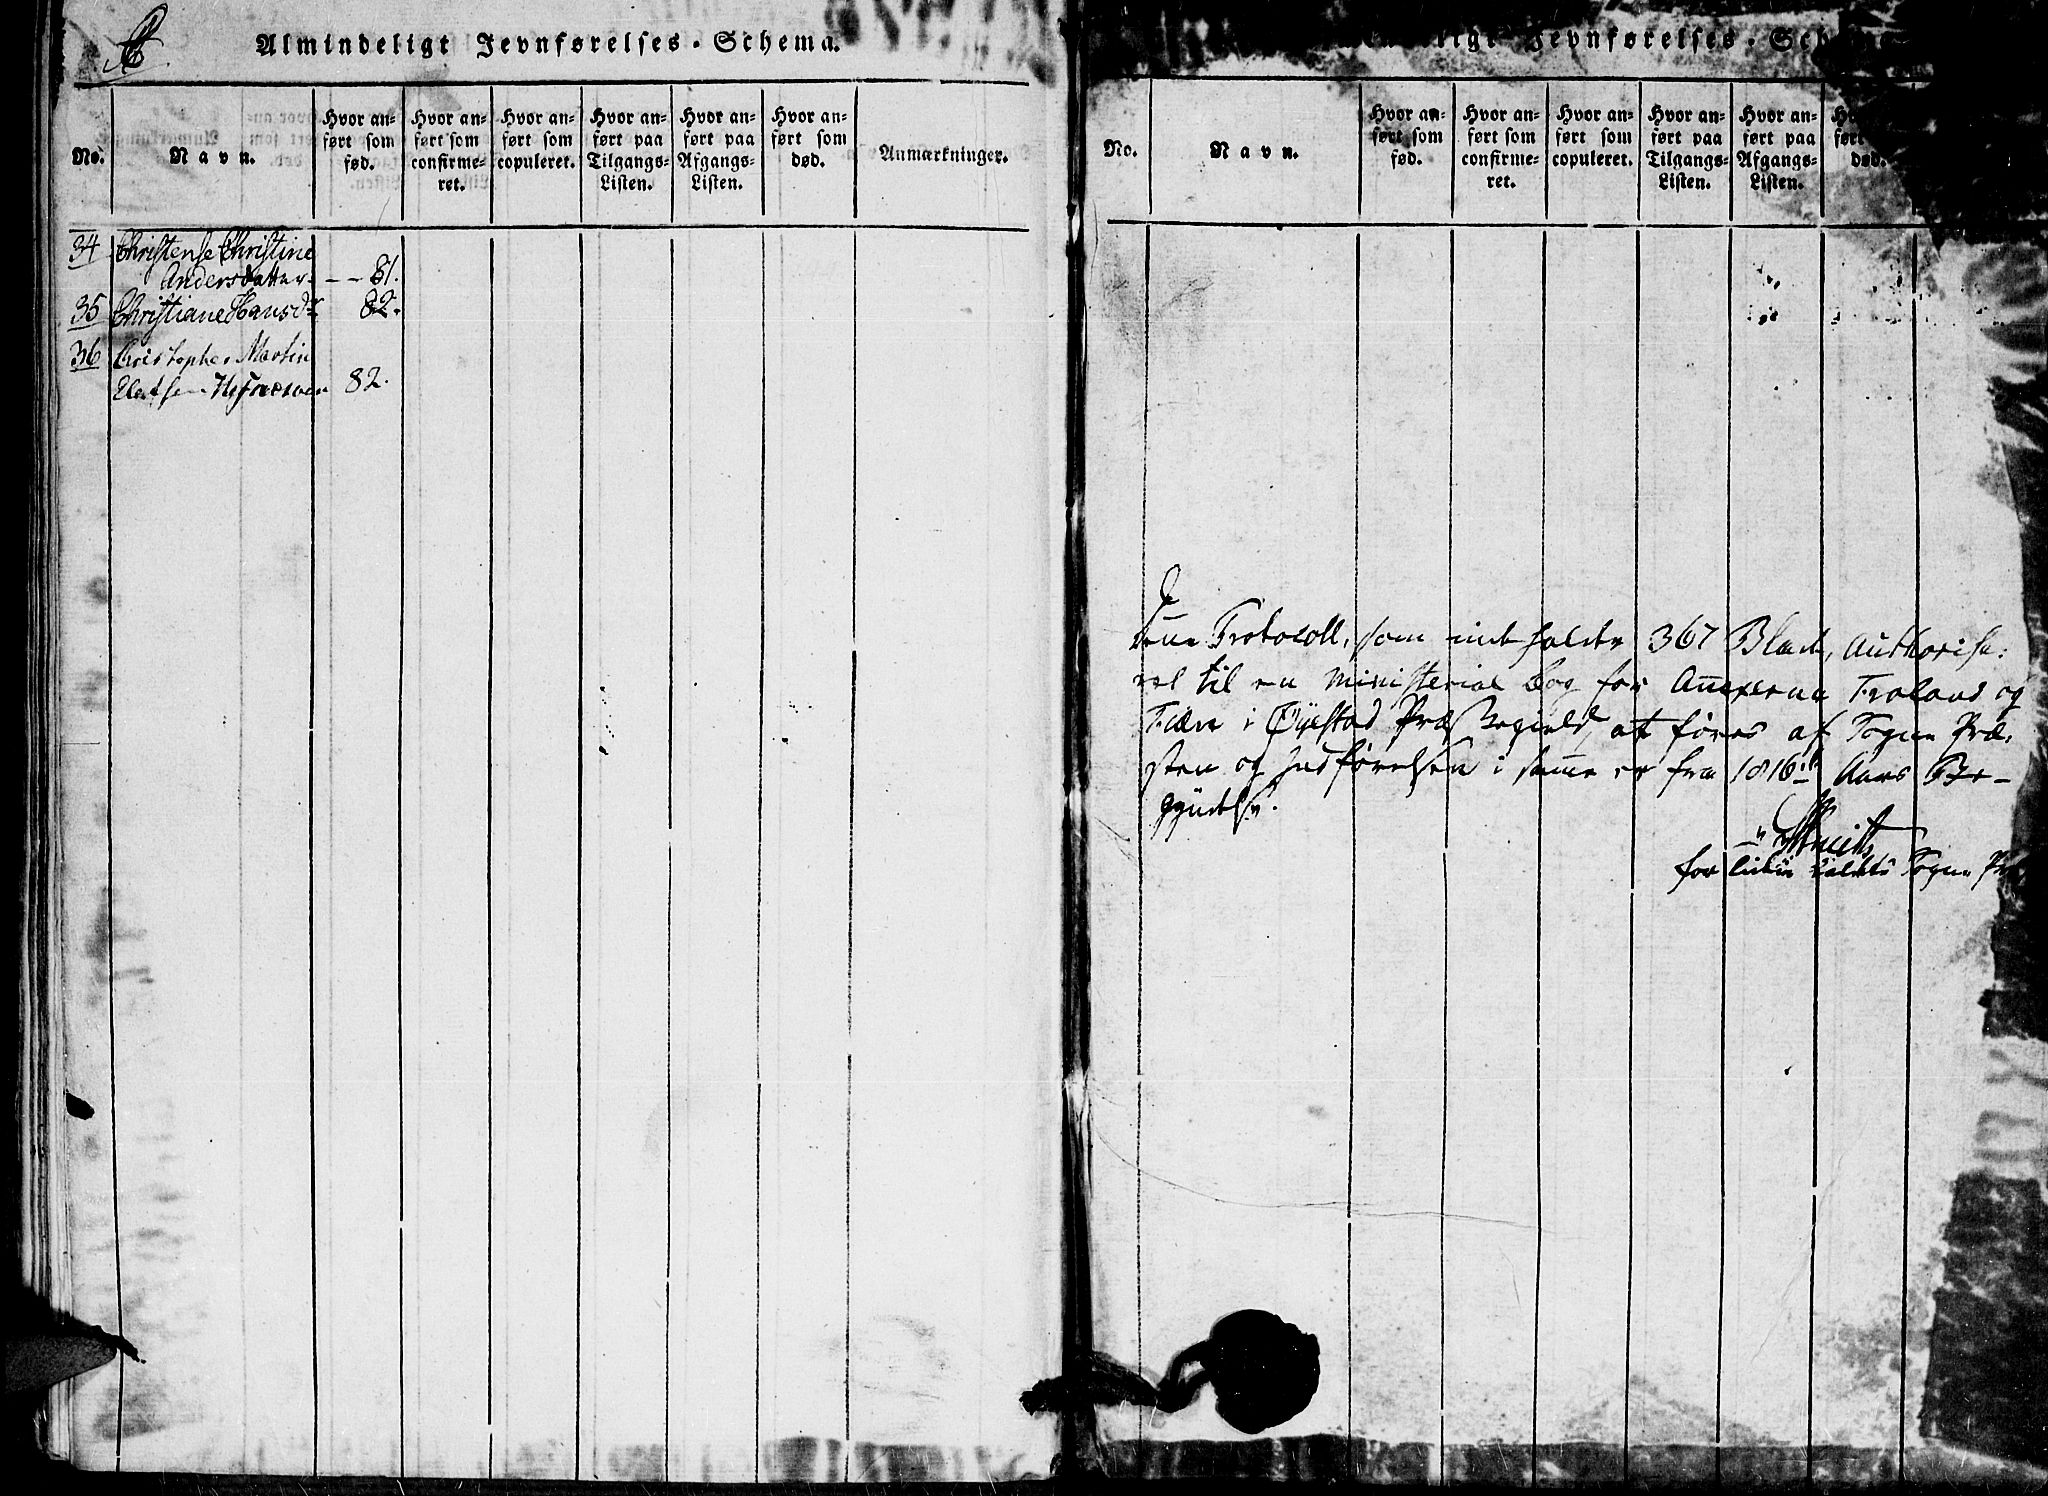 Almindeligt Jevnførelses-Schema.
No.
Navn.
Hvor anført som fød.
Hvor anført som confirmeret.
Hvor anført som copuleret.
Hvor anført paa Tilgangs-Listen.
Hvor anført paa Afgangs-Listen.
Hvor anført som død.
Anmærkninger.
34 Christense Christine
Andersdatter - - 81.
35 Christiane Hansdr 82.
36 Christopher Martin
82.
Jevnførelses-Schema
No.
Navn.
Hvor anført som fød.
Hvor anført som confirmeret.
Hvor anført som copuleret.
Hvor anført paa Tilgangs-Listen.
Hvor anført paa Afgangs-Listen.
ført død.
Denne Protocoll, som indholder 367 Blade, Authorise:
res til en Ministerial Bog for Annexerne Froland og
i Øyestad Præstegield, at føres af Sogne Præ:
sten og Indførelsen i samme er fra 1816 Aars Be-
gyndelse.
Smith
for Sogne